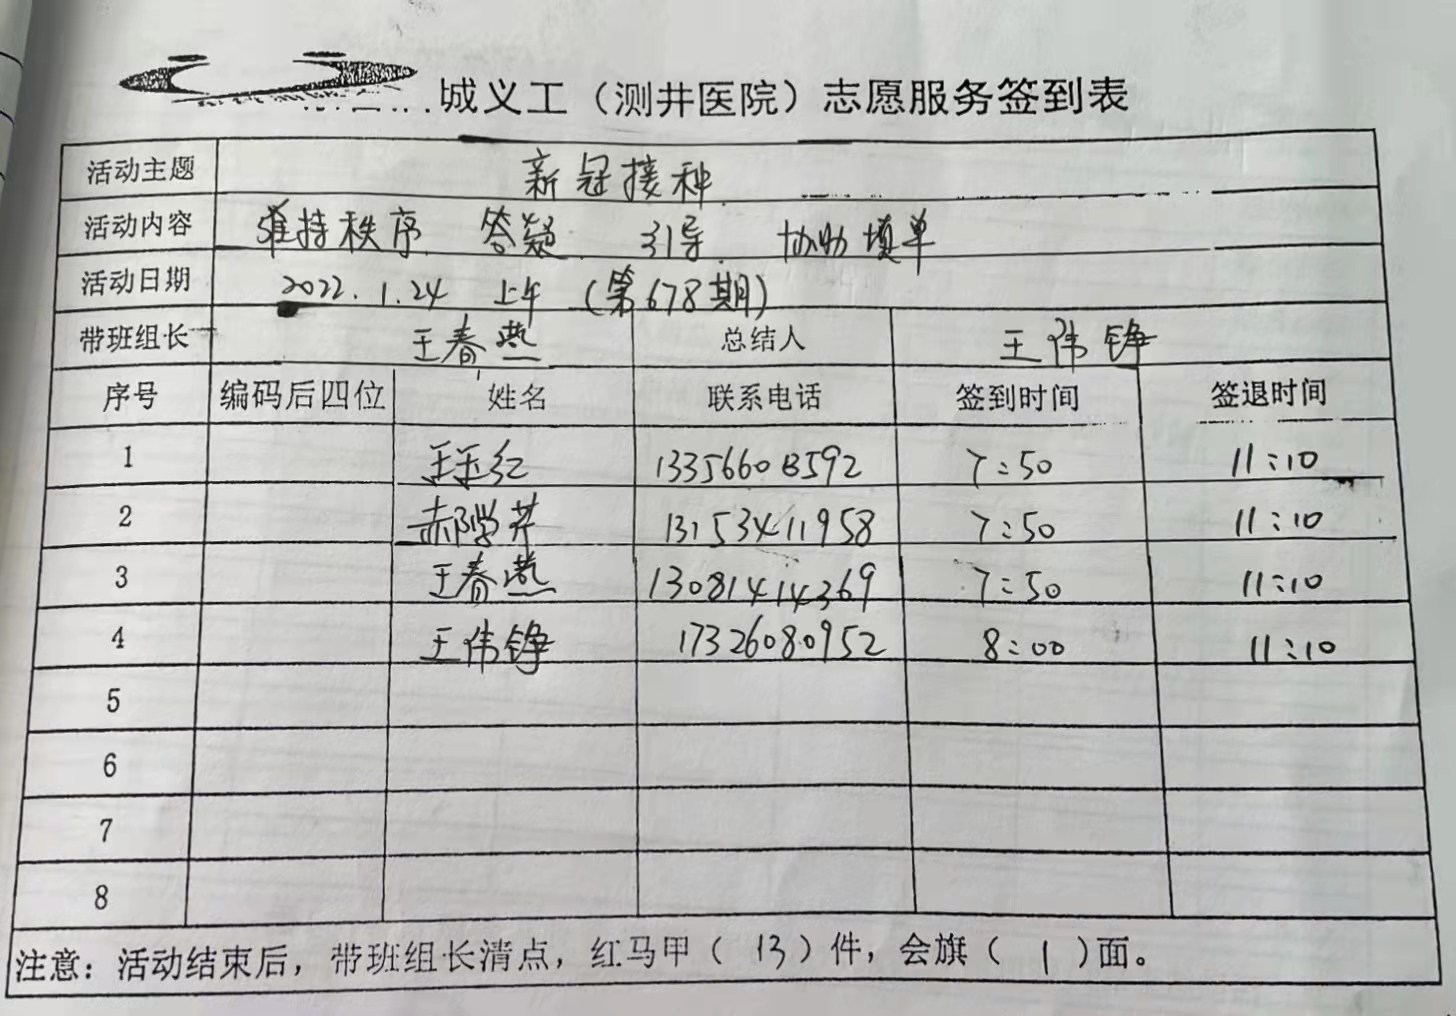 城义工（测井医院）志愿服务签到表
活动主题 新冠接种
活动内容 维持秩序 答疑 引导 协助填单
活动日期 2022.1.24 上午 (第678期)
带班组长 王春燕 总结人 王伟铮
序号 编码后四位 姓名 联系电话 签到时间 签退时间
1 王玉红 13356603592 7:50 11:10
2 郝学芹 13153411958 7:50 11:10
3 王春燕 13081414369 7:50 11:10
4 王伟铮 17326080952 8:00 11:10
5
6
7
8
注意：活动结束后，带班组长清点，红马甲（13）件，会旗（1）面。